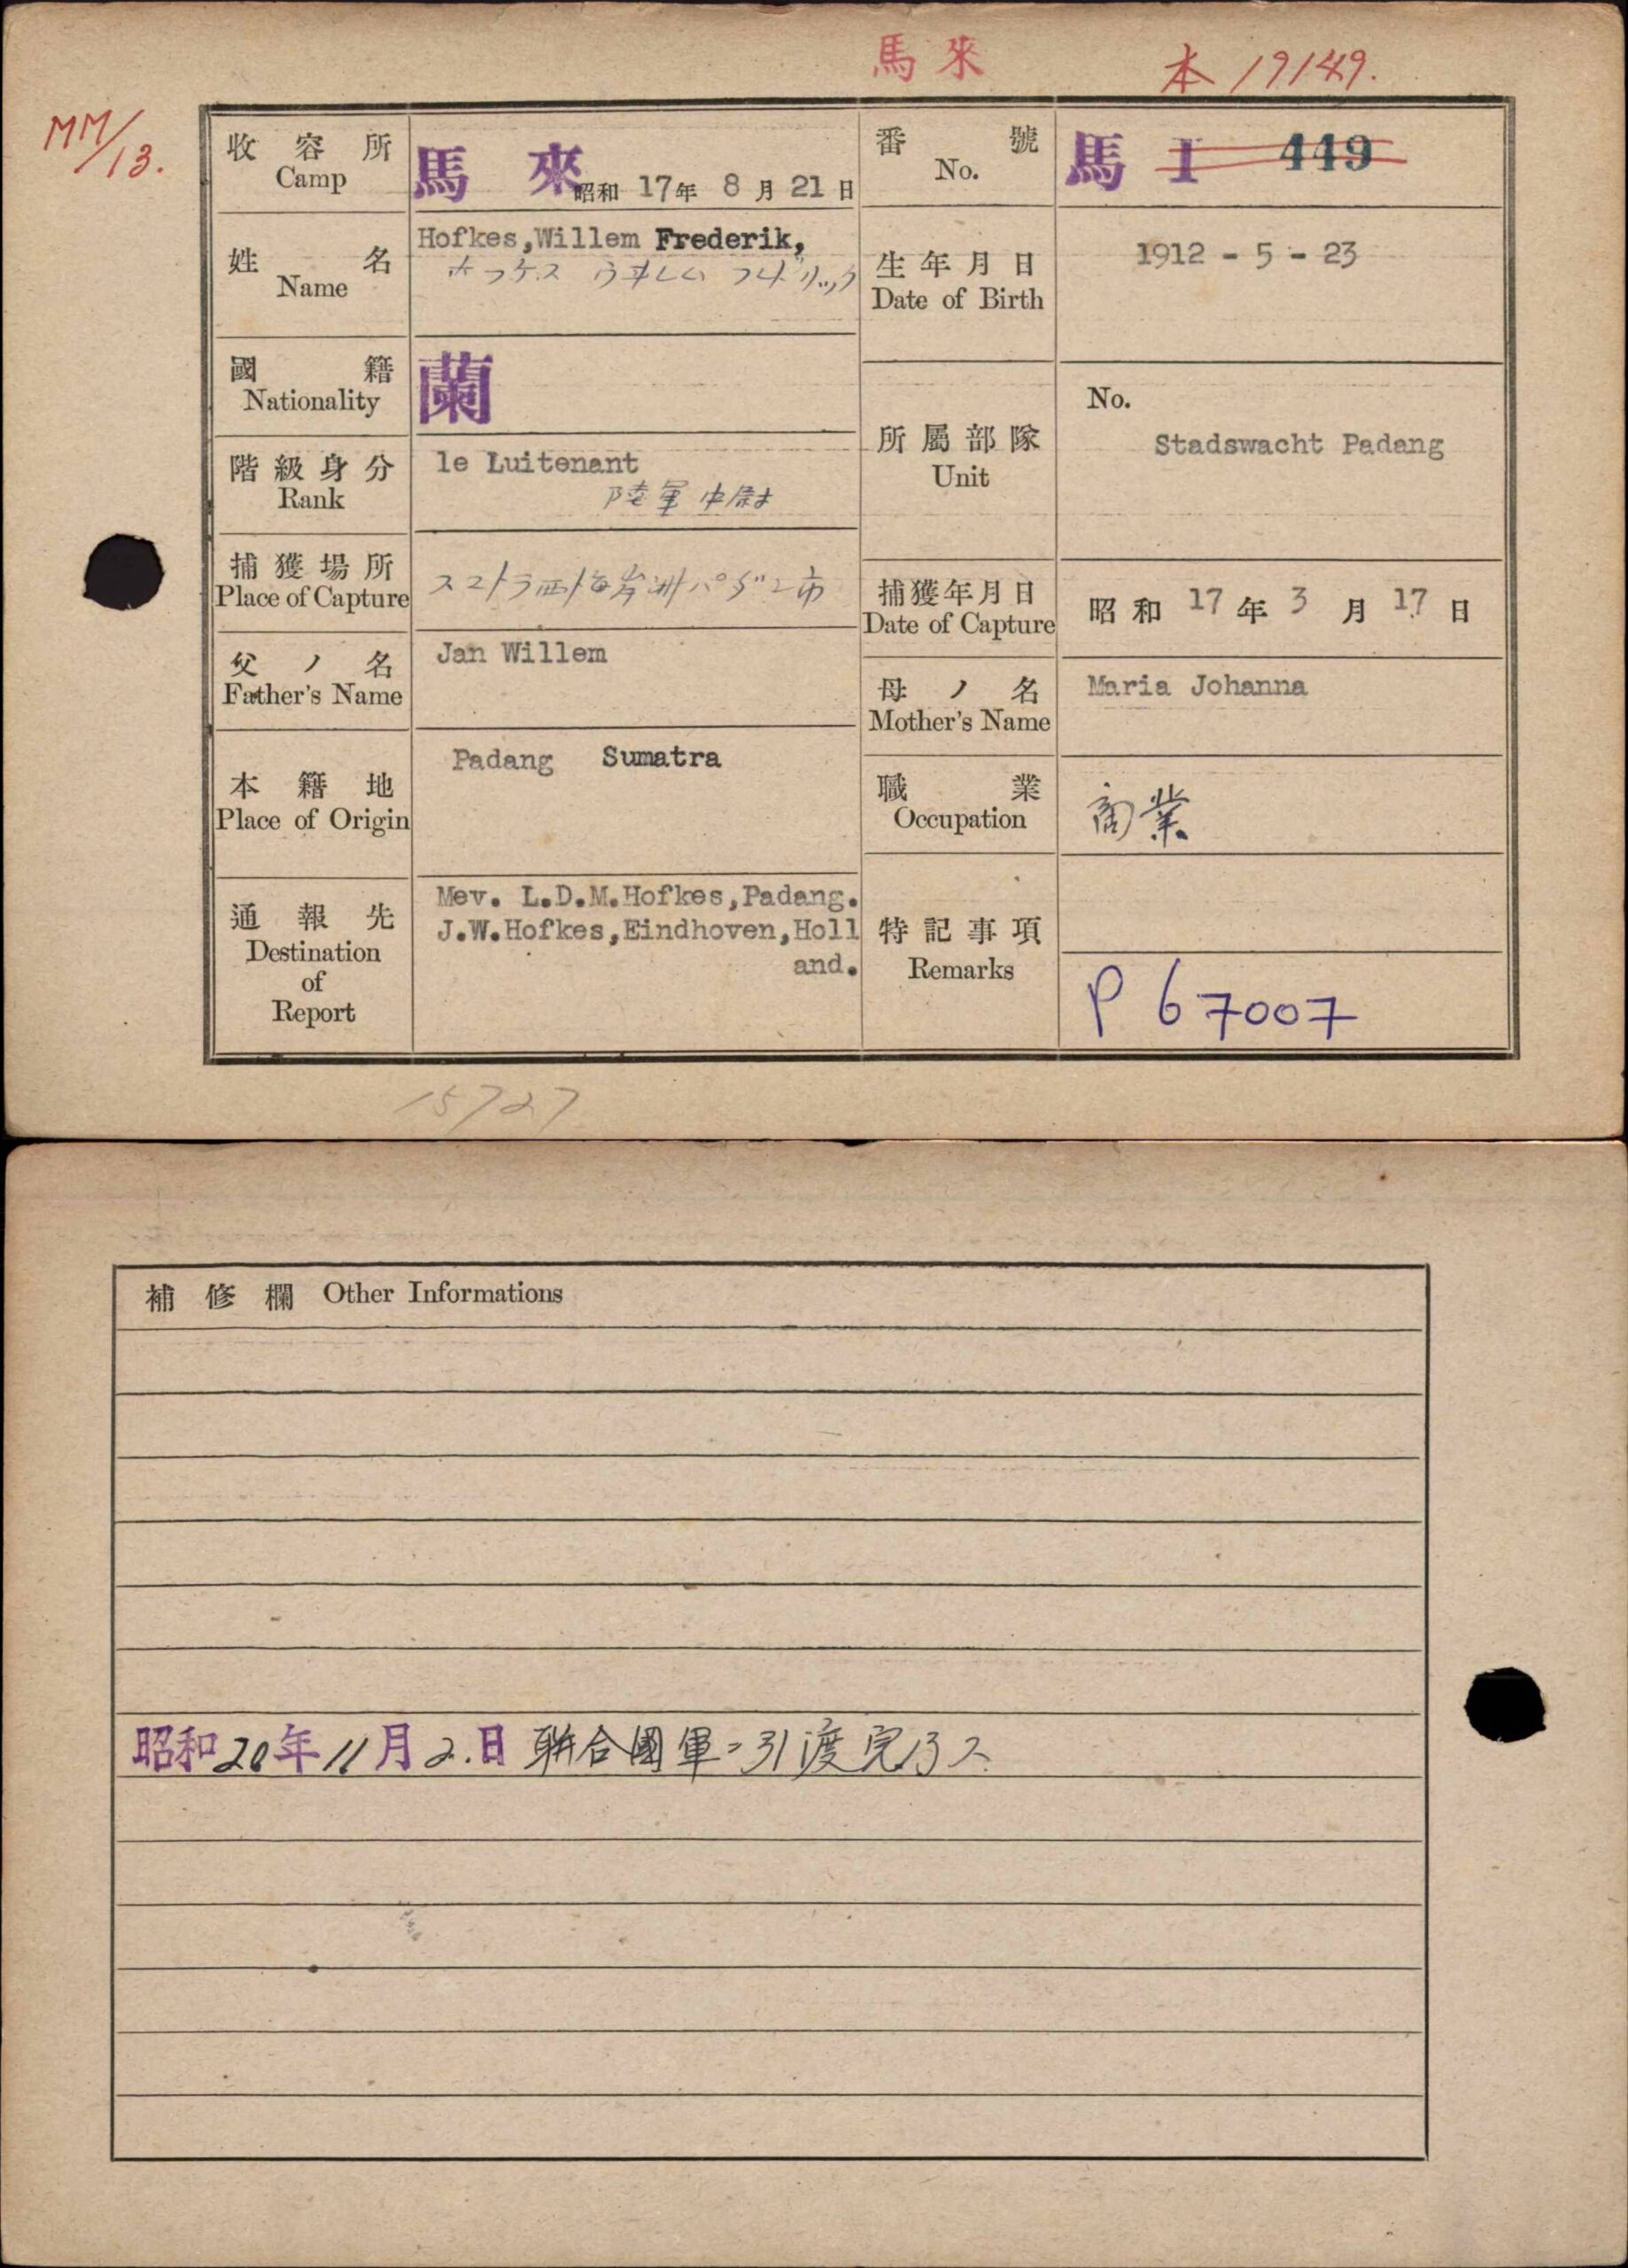 馬來
本 19149.
MM/13.
收容所 Camp
馬來 昭和 17年 8月 21日
番號 No.
馬 I 449
姓名 Name
Hofkes,Willem Frederik,
ホフケス ウヰレム フレデリック
生年月日 Date of Birth
1912 - 5 - 23
國籍 Nationality
蘭
階級身分 Rank
1e Luitenant
陸軍中尉
所屬部隊 Unit
No.
Stadswacht Padang
捕獲場所 Place of Capture
スマトラ西海岸洲パダン市
捕獲年月日 Date of Capture
昭和 17年 3月 17日
父ノ名 Father's Name
Jan Willem
母ノ名 Mother's Name
Maria Johanna
本籍地 Place of Origin
Padang Sumatra
職業 Occupation
商業
通報先 Destination of Report
Mev. L.D.M.Hofkes,Padang.
J.W.Hofkes,Eindhoven,Holl
and.
特記事項 Remarks
P 67007
15727
補修欄 Other Informations
昭和20年11月2.日 聯合國軍ニ引渡完了ス